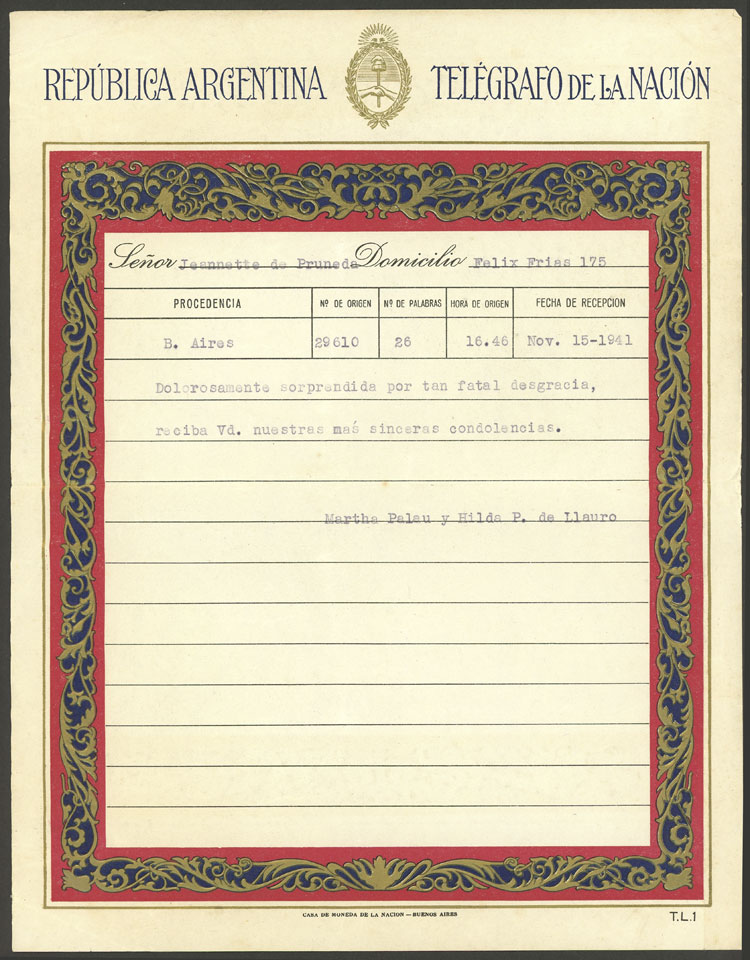 REPÚBLICA ARGENTINA TELÉGRAFO DE LA NACIÓN
Señor Jeannette de Pruneda Domicilio Felix Frias 175
PROCEDENCIA Nº DE ORIGEN Nº DE PALABRAS HORA DE ORIGEN FECHA DE RECEPCION
B. Aires 29610 26 16.46 Nov. 15-1941
Dolorosamente sorprendida por tan fatal desgracia,
reciba Vd. nuestras maś sinceras condolencias.
Martha Palau y Hilda P. de Llauro
CASA DE MONEDA DE LA NACION — BUENOS AIRES
T.L.1